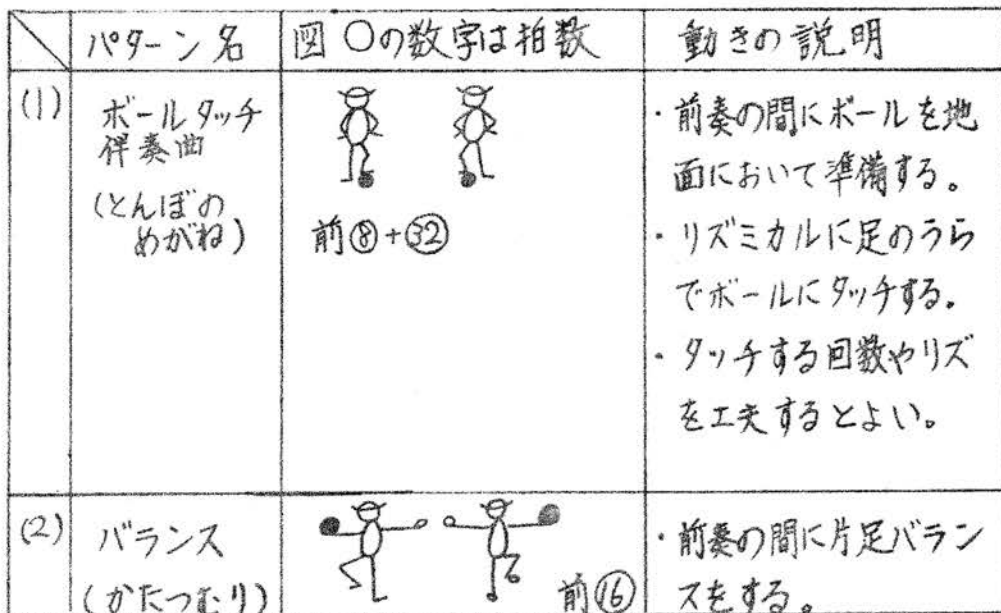 パターン名
図 ○の数字は拍数
動きの説明
(1)
ボールタッチ
伴奏曲
(とんぼの
めがね)
前⑧+㉜
・前奏の間にボールを地
面において準備する。
・リズミカルに足のうら
でボールにタッチする。
・タッチする回数やリズ
を工夫するとよい。
(2)
バランス
(かたつむり)
前⑯
・前奏の間に片足バラン
スをする。